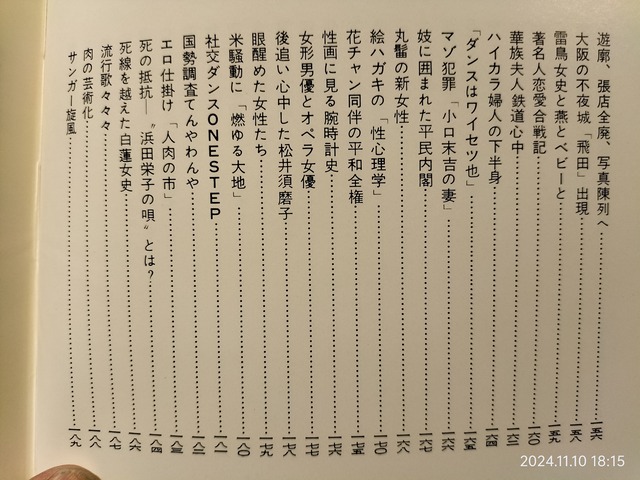 遊廓、張店全廃、写真陳列へ……一五六
大阪の不夜城「飛田」出現……一五八
雷鳥女史と燕とベビーと……一五九
著名人恋愛合戦記……一六〇
華族夫人鉄道心中……一六二
ハイカラ婦人の下半身……一六四
「ダンスはワイセツ也」……一六五
マゾ犯罪「小口末吉の妻」……一六六
妓に囲まれた平民内閣……一六七
丸髷の新女性……一六八
絵ハガキの「性心理学」……一七〇
花チャン同伴の平和全権……一七五
性画に見る腕時計史……一七六
女形男優とオペラ女優……一七七
後追い心中した松井須磨子……一七八
眼醒めた女性たち……一七九
米騒動に「燃ゆる大地」……一八〇
社交ダンスONESTEP……一八一
国勢調査てんやわんや……一八二
エロ仕掛け「人肉の市」……一八三
死の抵抗〝浜田栄子の唄〟とは?……一八四
死線を越えた白蓮女史……一八六
流行歌々々々……一八七
肉の芸術化……一八八
サンガー旋風……一八九
2024.11.10 18:15